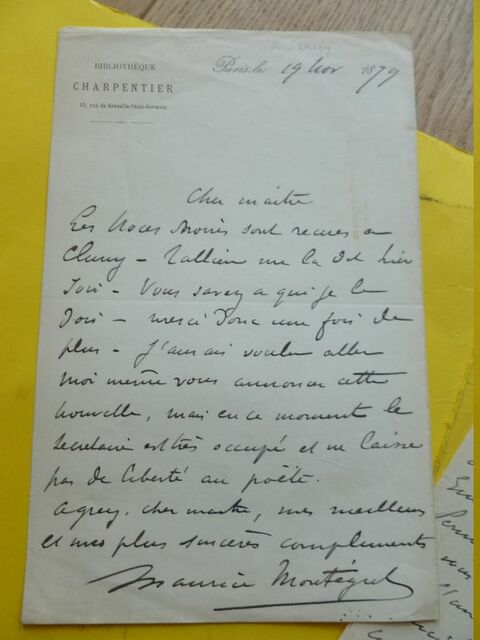 BIBLIOTHÈQUE
CHARPENTIER
13, rue de Grenelle-Saint-Germain
Paris, le 19 Nov 1879
Cher maître
Les Noces sont reçues à
Cluny – Tallien me l'a dit hier
soir – Vous savez à qui je le
dois – merci donc une fois de
plus – J'aurais voulu aller
moi même vous annoncer cette
nouvelle, mais en ce moment le
secrétaire est très occupé et ne laisse
pas de liberté au poète.
Agréez, cher maître, mes meilleurs
et mes plus sincères compliments
Maurice Montégut